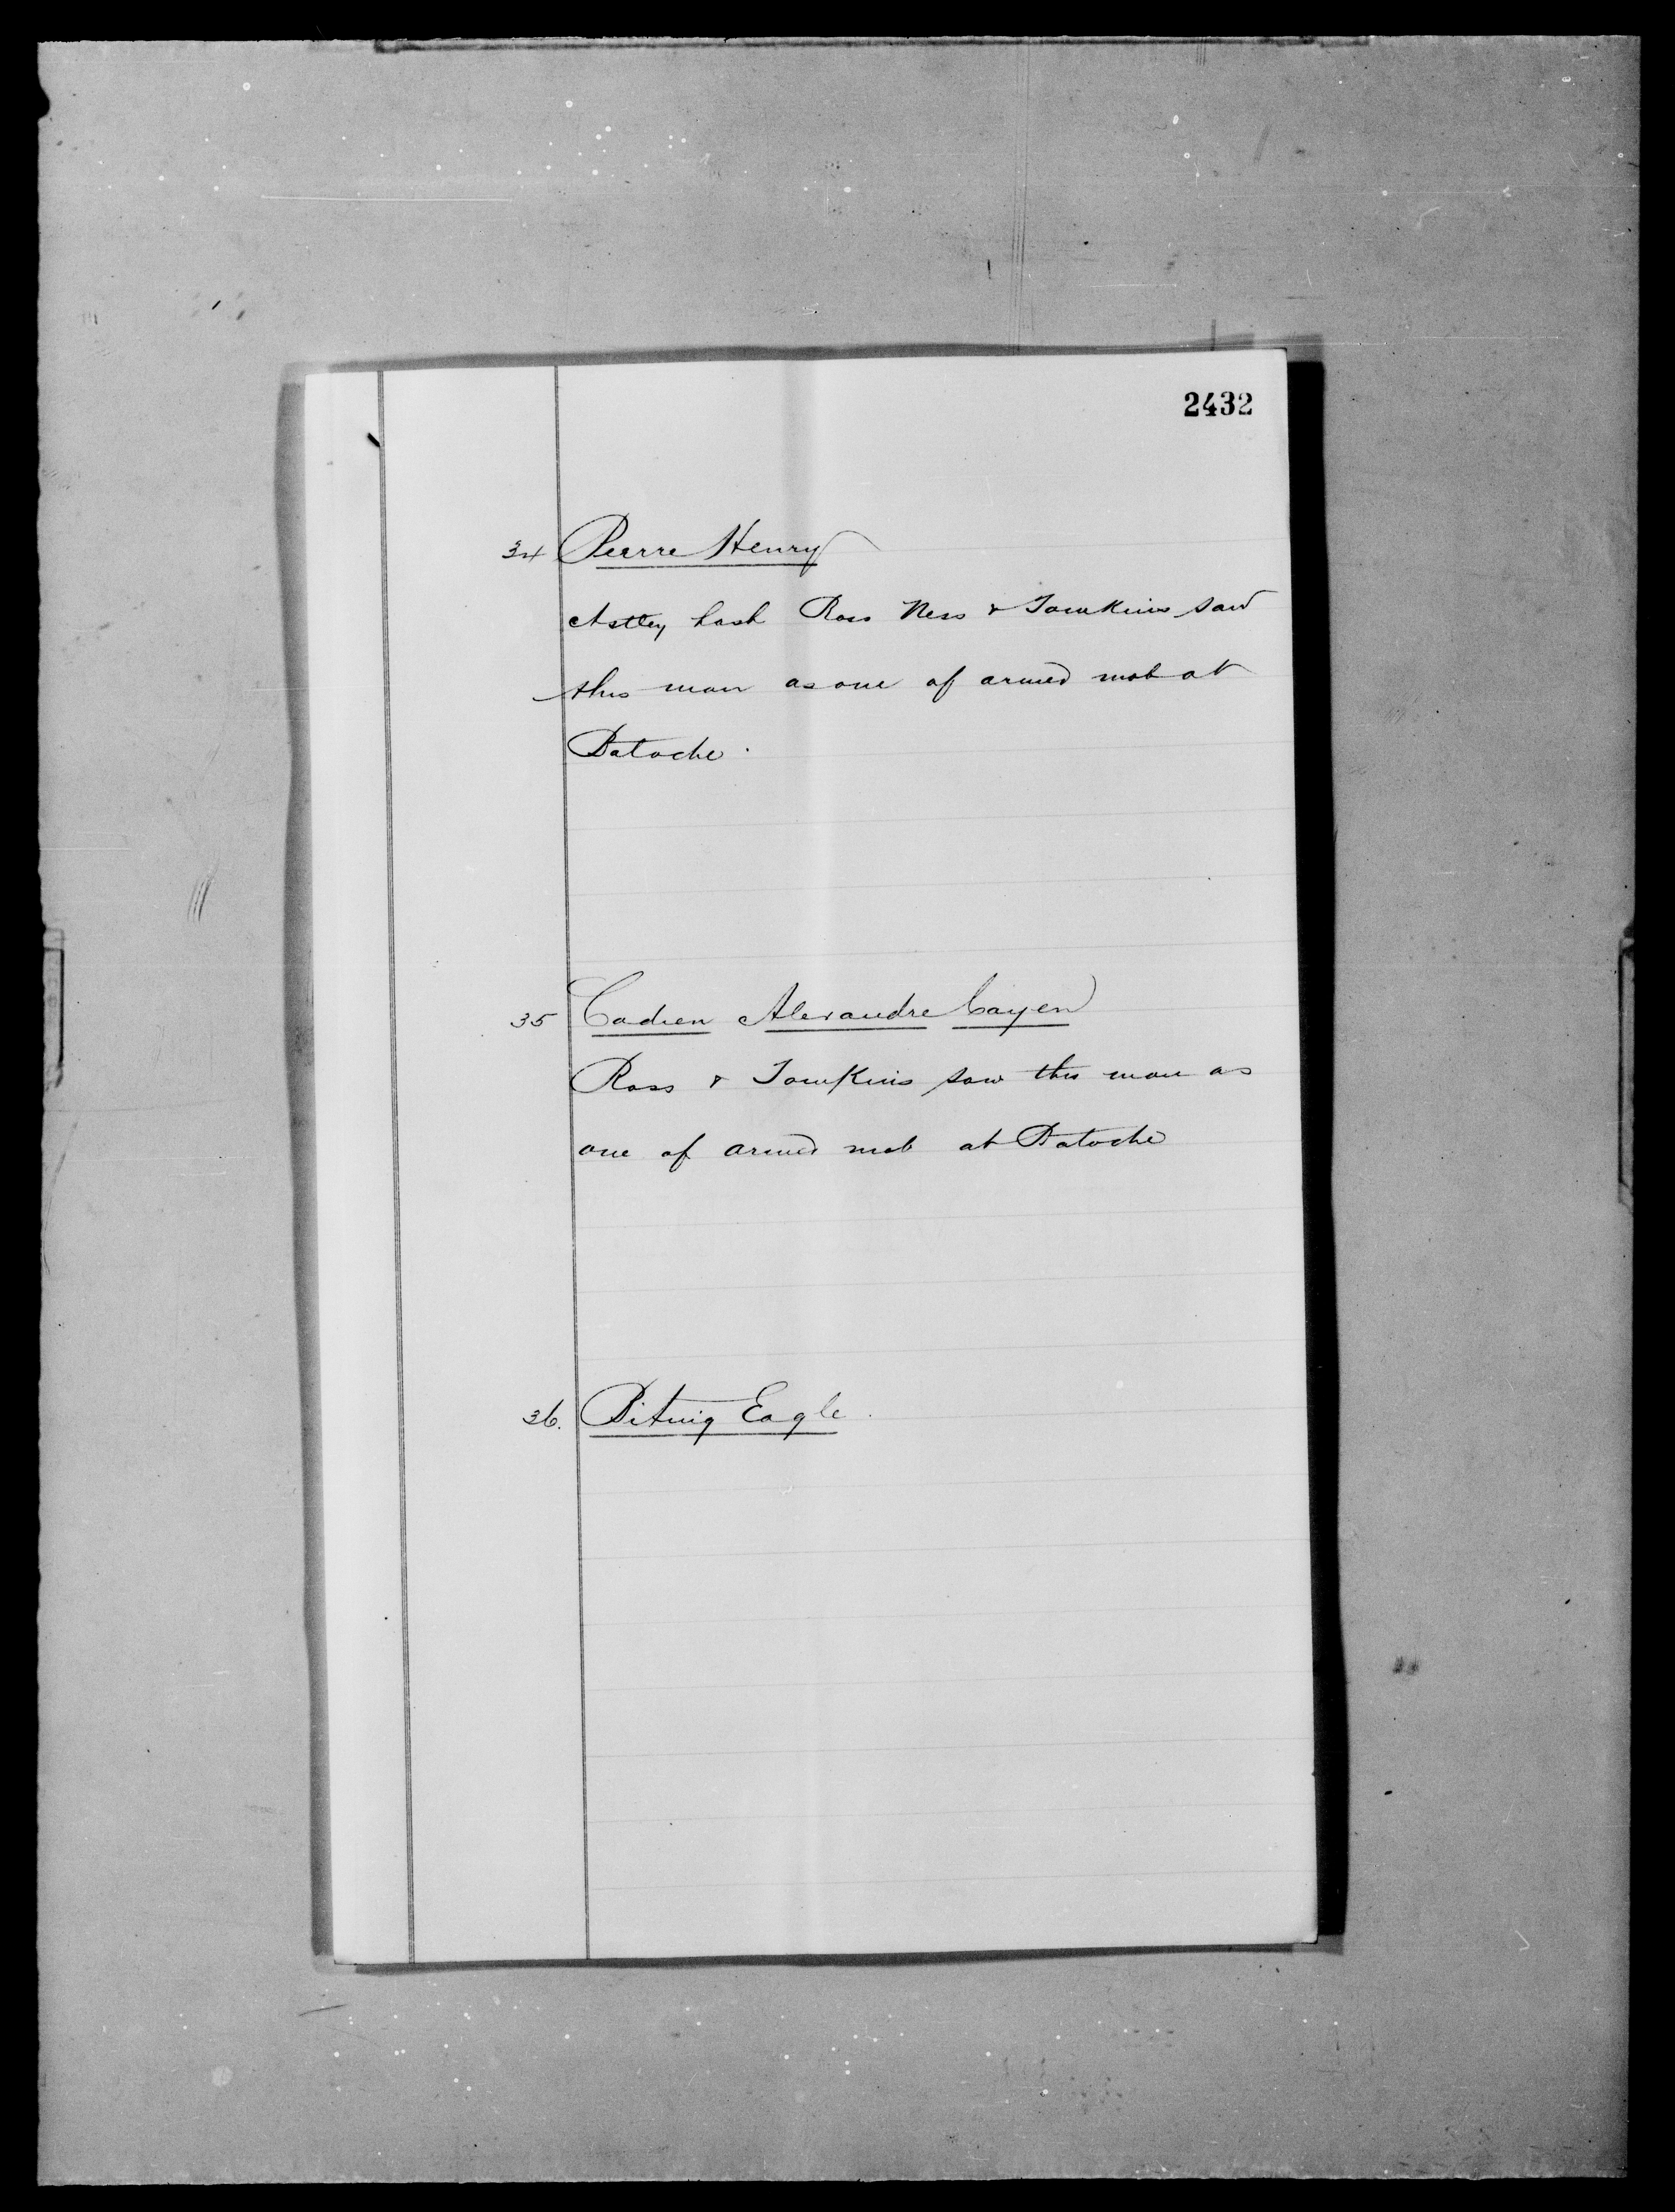 2432
34 Pierre Henry
Astley Lash Ross Ness & Tomkins saw
this man as one of armed mob at
Batoche.
35 Cadien Alexandre Cayen
Ross & Tomkins saw this man as
one of armed mob at Batoche
36. Bitnig Eagle.